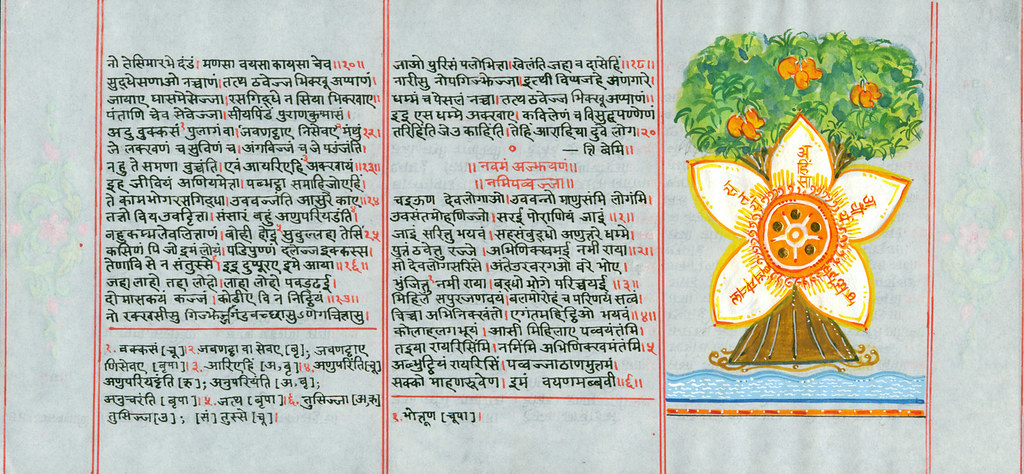 नो तेसिमारभे दंडं। मणसा वयसा कायसा चेव॥१०॥
सुद्धेसणाओ नच्चाणं। तत्थ ठवेज्ज भिक्खू अप्पाणं।
जायाए घासमेसेज्जा। रसगिद्धे न सिया भिक्खाए॥
पंताणि चेव सेवेज्जा। सीयपिंडं पुराणकुम्मासं।
अदु वुक्कसं पुलागं वा। जवणट्ठाए निसेवए मंथुं॥१२॥
जे लक्खणं च सुविणं च। अंगविज्जं च जे पउंजंति।
न हु ते समणा वुच्चंति। एवं आयरिएहिं अक्खायं॥१३॥
इह जीवियं अणियमेत्ता। पब्भट्ठा समाहिजोएहिं।
ते कामभोगरसगिद्धा। उववज्जंति आसुरे काए॥१४॥
तत्तो वि य उवट्टित्ता। संसारं बहुं अणुपरियडंति।
बहुकम्मलेवलित्ताणं। बोही होइ सुदुल्लहा तेसिं॥१५॥
कसिणं पि जो इमं लोयं। पडिपुण्णं दलेज्ज इक्कस्स।
तेणावि से न संतुस्से। इइ दुप्पूरए इमे आया॥१६॥
जहा लाहो तहा लोहो। लाहा लोहो पवड्ढई।
दोमासकयं कज्जं। कोडीए वि न निट्ठियं॥१७॥
नो रक्खसीसु गिज्झेज्जा
१. बक्कसं [चू] २. जवणट्ठा वा सेवए [बृ], जवणट्ठाए
णिसेवए [बृपा] ३. आरिएहिं [अ, बृ] ४. अणुपरिंति [चू]
अणुपरियट्टंति [ऋ]; अनुपरियंति [अ, बृ];
अनुचरंति [बृपा] ५. जत्थ [बृपा] ६. तुसिज्जा [अ, ऋ]
तुसिज्ज [उ]; [सं] तुस्से [चू]।
जाओ पुरिसं पलोभित्ता। खेलंति जहा व दासेहिं॥१८॥
नारीसु नोपगिज्झेज्जा। इत्थी विप्पजहे अणगारे।
धम्मं च पेसलं नच्चा। तत्थ ठवेज्ज भिक्खू अप्पाणं॥
इइ एस धम्मे अक्खाए। कविलेणं च विसुद्धपण्णेणं
तरिहिंति जे उ काहिंति। तेहिं आराहिया दुवे लोग॥२०
— त्ति बेमि॥
॥ नवमं अज्झयणं॥
॥ नमिपव्वज्जा॥
चइऊण देवलोगाओ। उववन्नो माणुसंमि लोगंमि।
उवसंतमोहणिज्जो। सरई पोराणियं जाइं॥१॥
जाइं सरित्तु भयवं। सहसंबुद्धो अणुत्तरे धम्मे।
पुत्तं ठवेत्तु रज्जे। अभिणिक्खमई नमी राया॥२॥
सो देवलोगसरिसे। अंतेउरवरगओ वरे भोए।
भुंजित्तु नमी राया। बुद्धो भोगे परिच्चयई॥३॥
मिहिलं सपुरजणवयं। बलमोरोहं च परियणं सव्वं।
चिच्चा अभिनिक्खंतो। एगंतमहिट्ठिओ भयवं॥४॥
कोलाहलगभूयं। आसी मिहिलाए पव्वयंतंमि।
तइया रायरिसिंमि। नमिंमि अभिणिक्खमंतंमि॥५
अब्भुट्ठियं रायरिसिं। पव्वज्जाठाणमुत्तमं।
सक्को माहणरूवेण। इमं वयणमब्बवी॥६॥
१. भोत्तूण [चूपा]।